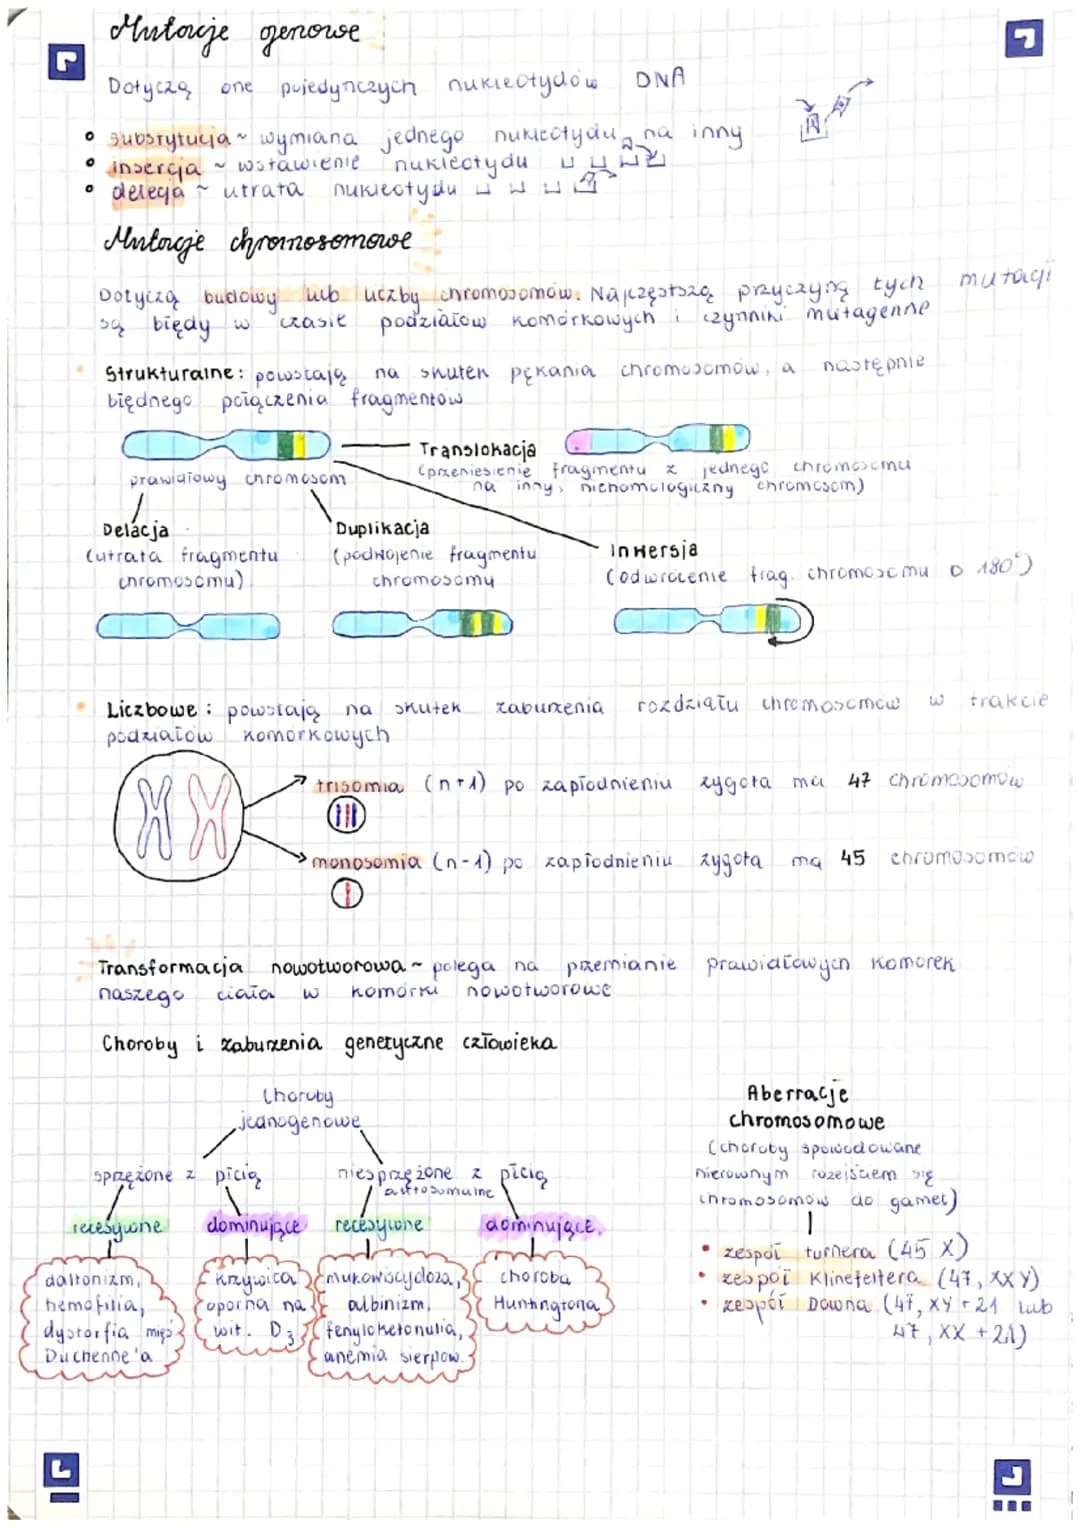 Mutacje genowe
Dotyczą one pojedynczych nukleotydów DNA
substytucja ~ wymiana jednego nukleotydu na inny
insercja ~ wstawienie nukleotydu
delecja ~ utrata nukleotydu
Mutacje chromosomowe
Dotyczą budowy lub liczby chromosomów. Najczęstszą przyczyną tych mutacji
są błędy w czasie podziałów komórkowych i czynniki mutagenne
Strukturalne: powstają na skutek pękania chromosomów, a następnie
błędnego połączenia fragmentów
prawidłowy chromosom
Translokacja
(przeniesienie fragmentu z jednego chromosomu
na inny, niehomologiczny chromosom)
Delacja
(utrata fragmentu
chromosomu)
Duplikacja
(podwojenie fragmentu
chromosomu
Inwersja
(odwrócenie frag. chromosomu o 180°)
Liczbowe: powstają na skutek zaburzenia rozdziału chromosomów w trakcie
podziałów komórkowych
trisomia (n+1) po zapłodnieniu zygota ma 47 chromosomów
monosomia (n-1) po zapłodnieniu zygota ma 45 chromosomów
Transformacja nowotworowa ~ polega na przemianie prawidłowych komórek
naszego ciała w komórki nowotworowe
Choroby i zaburzenia genetyczne człowieka
Choroby
jednogenowe
sprzężone z płcią
niesprzężone z płcią
autosomalne
recesywne
dominujące
recesywne
dominujące
daltonizm,
hemofilia,
dystorfia mięś
Duchenne'a
krzywica
oporna na
wit. D3
mukowiscydoza,
albinizm,
fenyloketonulia,
anemia sierpow.
choroba
Huntingtona
Aberracje
chromosomowe
(choroby spowodowane
nierownym rozejściem się
chromosomów do gamet)
zespół turnera (45 X)
zespół Klinefeltera (47, XXY)
zespół Downa (47, XY + 21 lub
47, XX + 21)